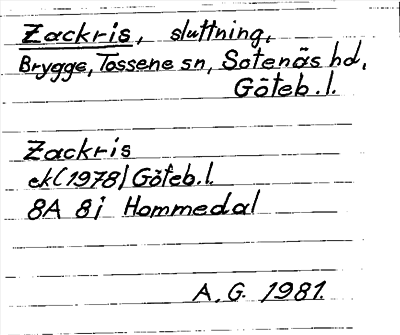 Zackris, sluttning,
Brygge, Tossene sn, Sotenäs hd,
Göteb. l.
Zackris
ek (1978) Göteb. l.
8A 8i Hommedal
A. G. 1981.